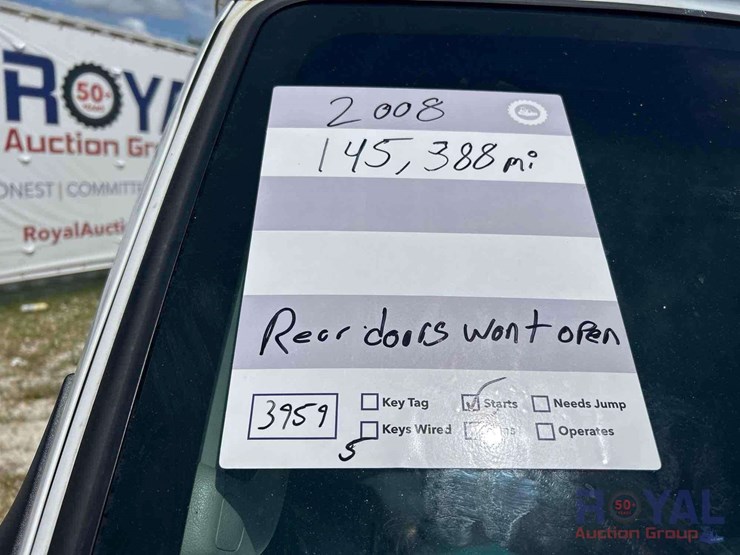 ROY
50+
YEARS
Auction Gr
ONEST | COMMITTE
RoyalAucti
2008
145,388 mi
Rear doors wont open
3959
Key Tag
Starts
Needs Jump
Keys Wired
Operates
5
ROYAL
50+
Auction Group